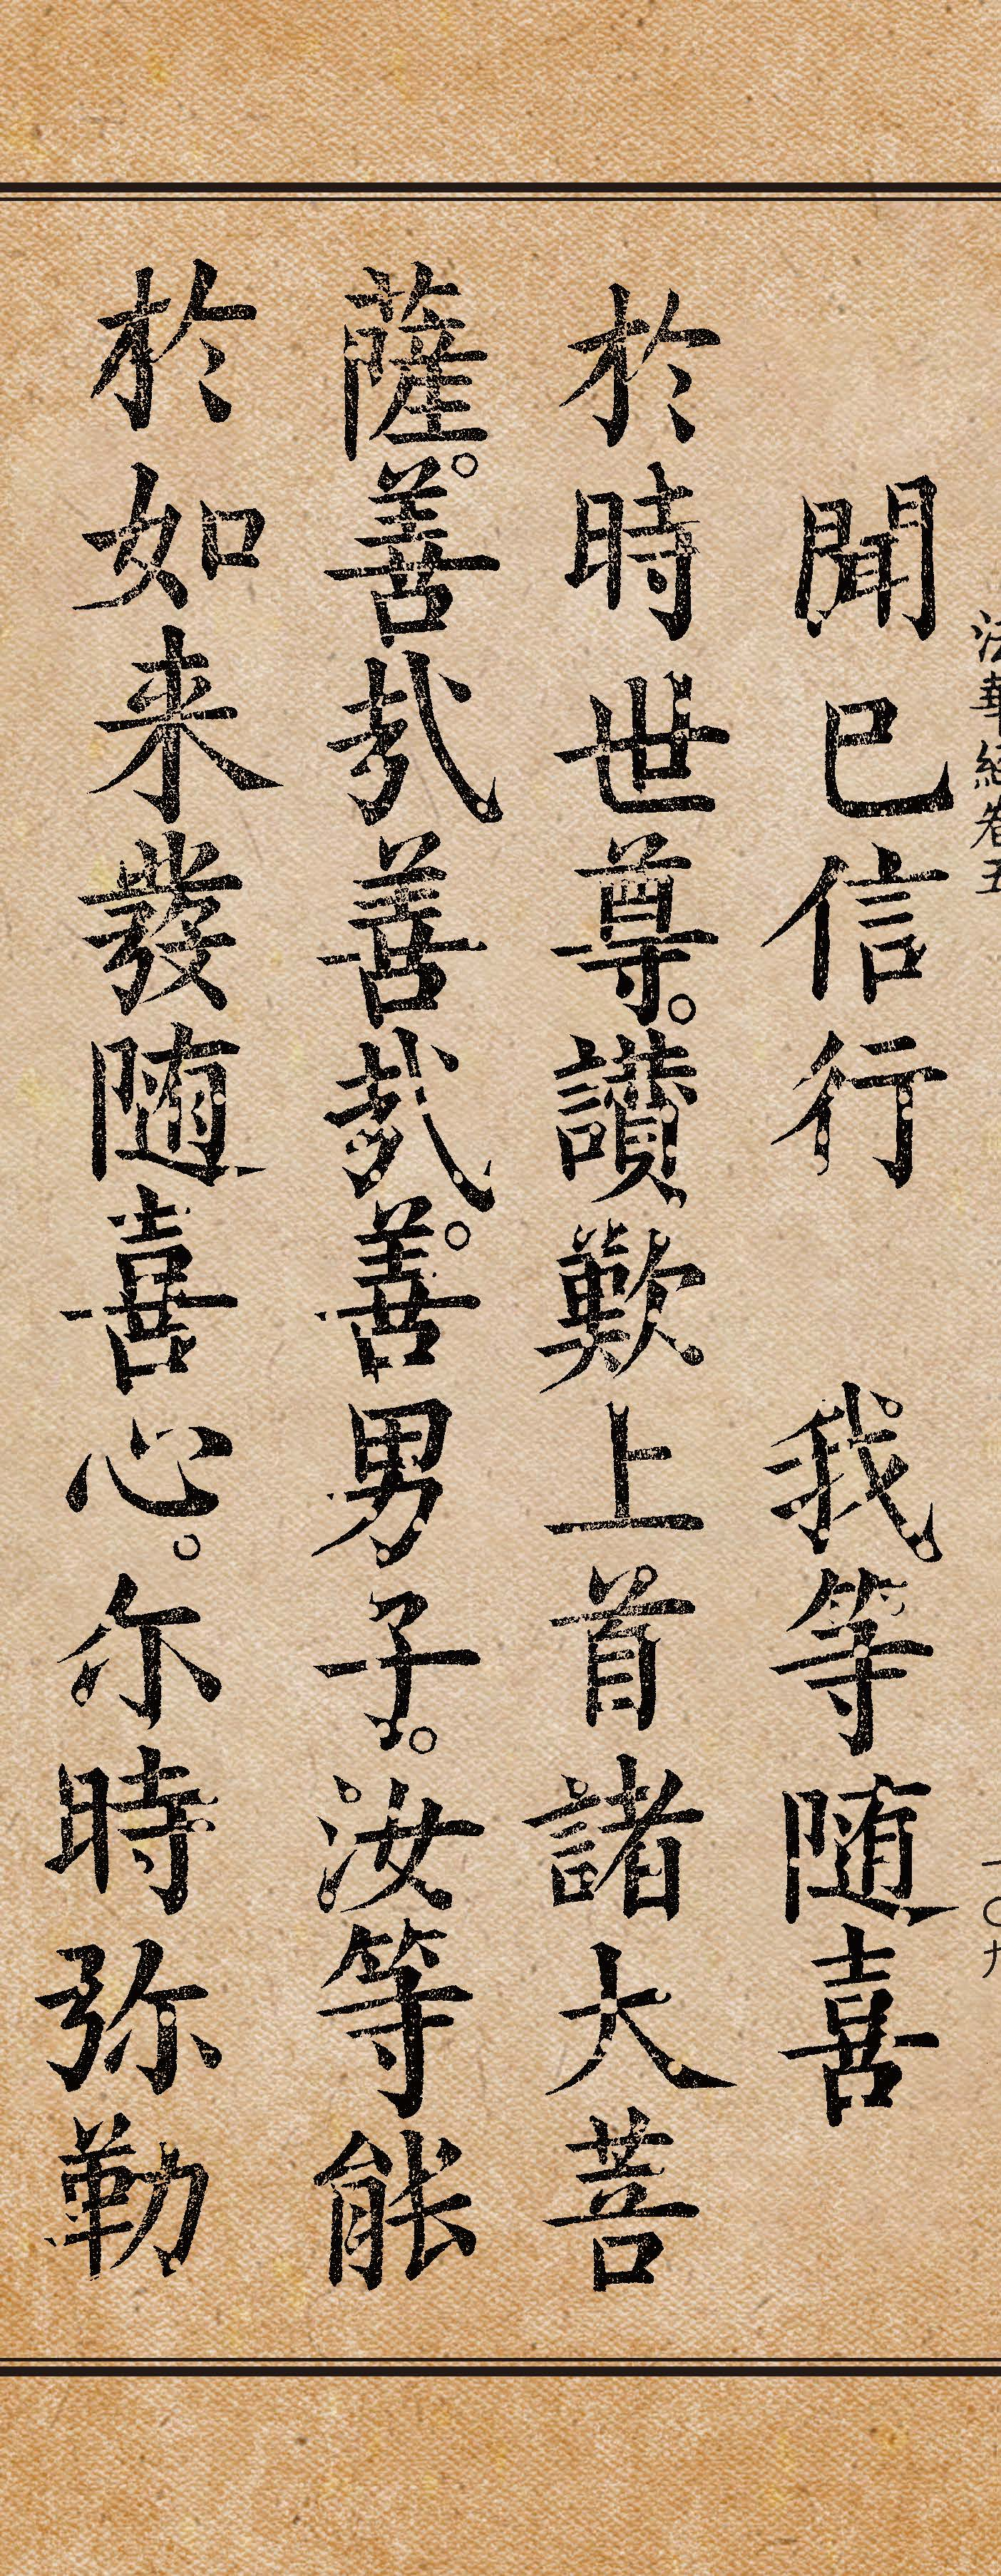 法華經卷五
一〇九
聞巳信行　我等随喜
於時世尊。讃歎上首諸大菩
薩。善哉善哉。善男子。汝等能
於如来發随喜心。尓時弥勒